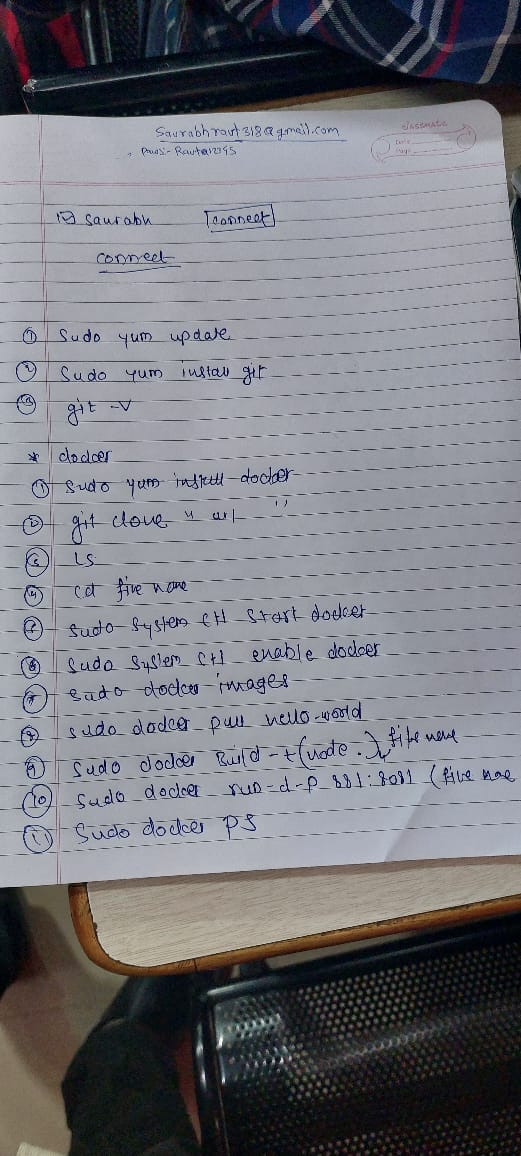 Saurabhraut318@gmail.com
classmate
Date
Page
Pass:- Raut@12345
saurabh connect
connect
① Sudo yum update
② Sudo yum install git
③ git -v
* docker
① Sudo yum install docker
② git clone " url "
③ LS
④ cd file name
Sudo System Ctl Start docker
⑥ Sudo System Ctl enable docker
⑦ sudo docker images
⑧ sudo docker pull hello-world
⑨ Sudo docker Build -t (node .) file name
⑩ Sudo docker run -d -p 881:8081 (file name
⑪ Sudo docker PS